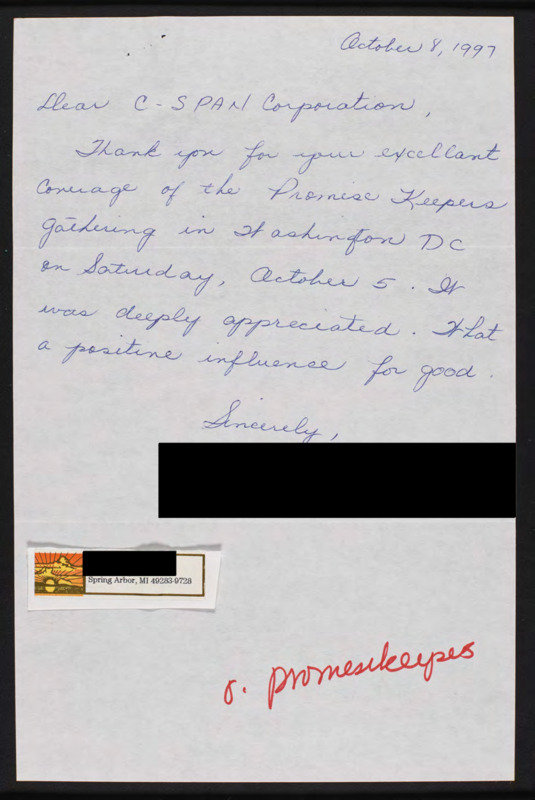 October 8, 1997
Dear C-SPAN Corporation,
Thank you for your excellant
Coverage of the Promise Keepers
gathering in Washington DC
on Saturday, October 5. It
was deeply appreciated. What
a positive influence for good.
Sincerely,
Spring Arbor, MI 49283-9728
r. promesekeepes